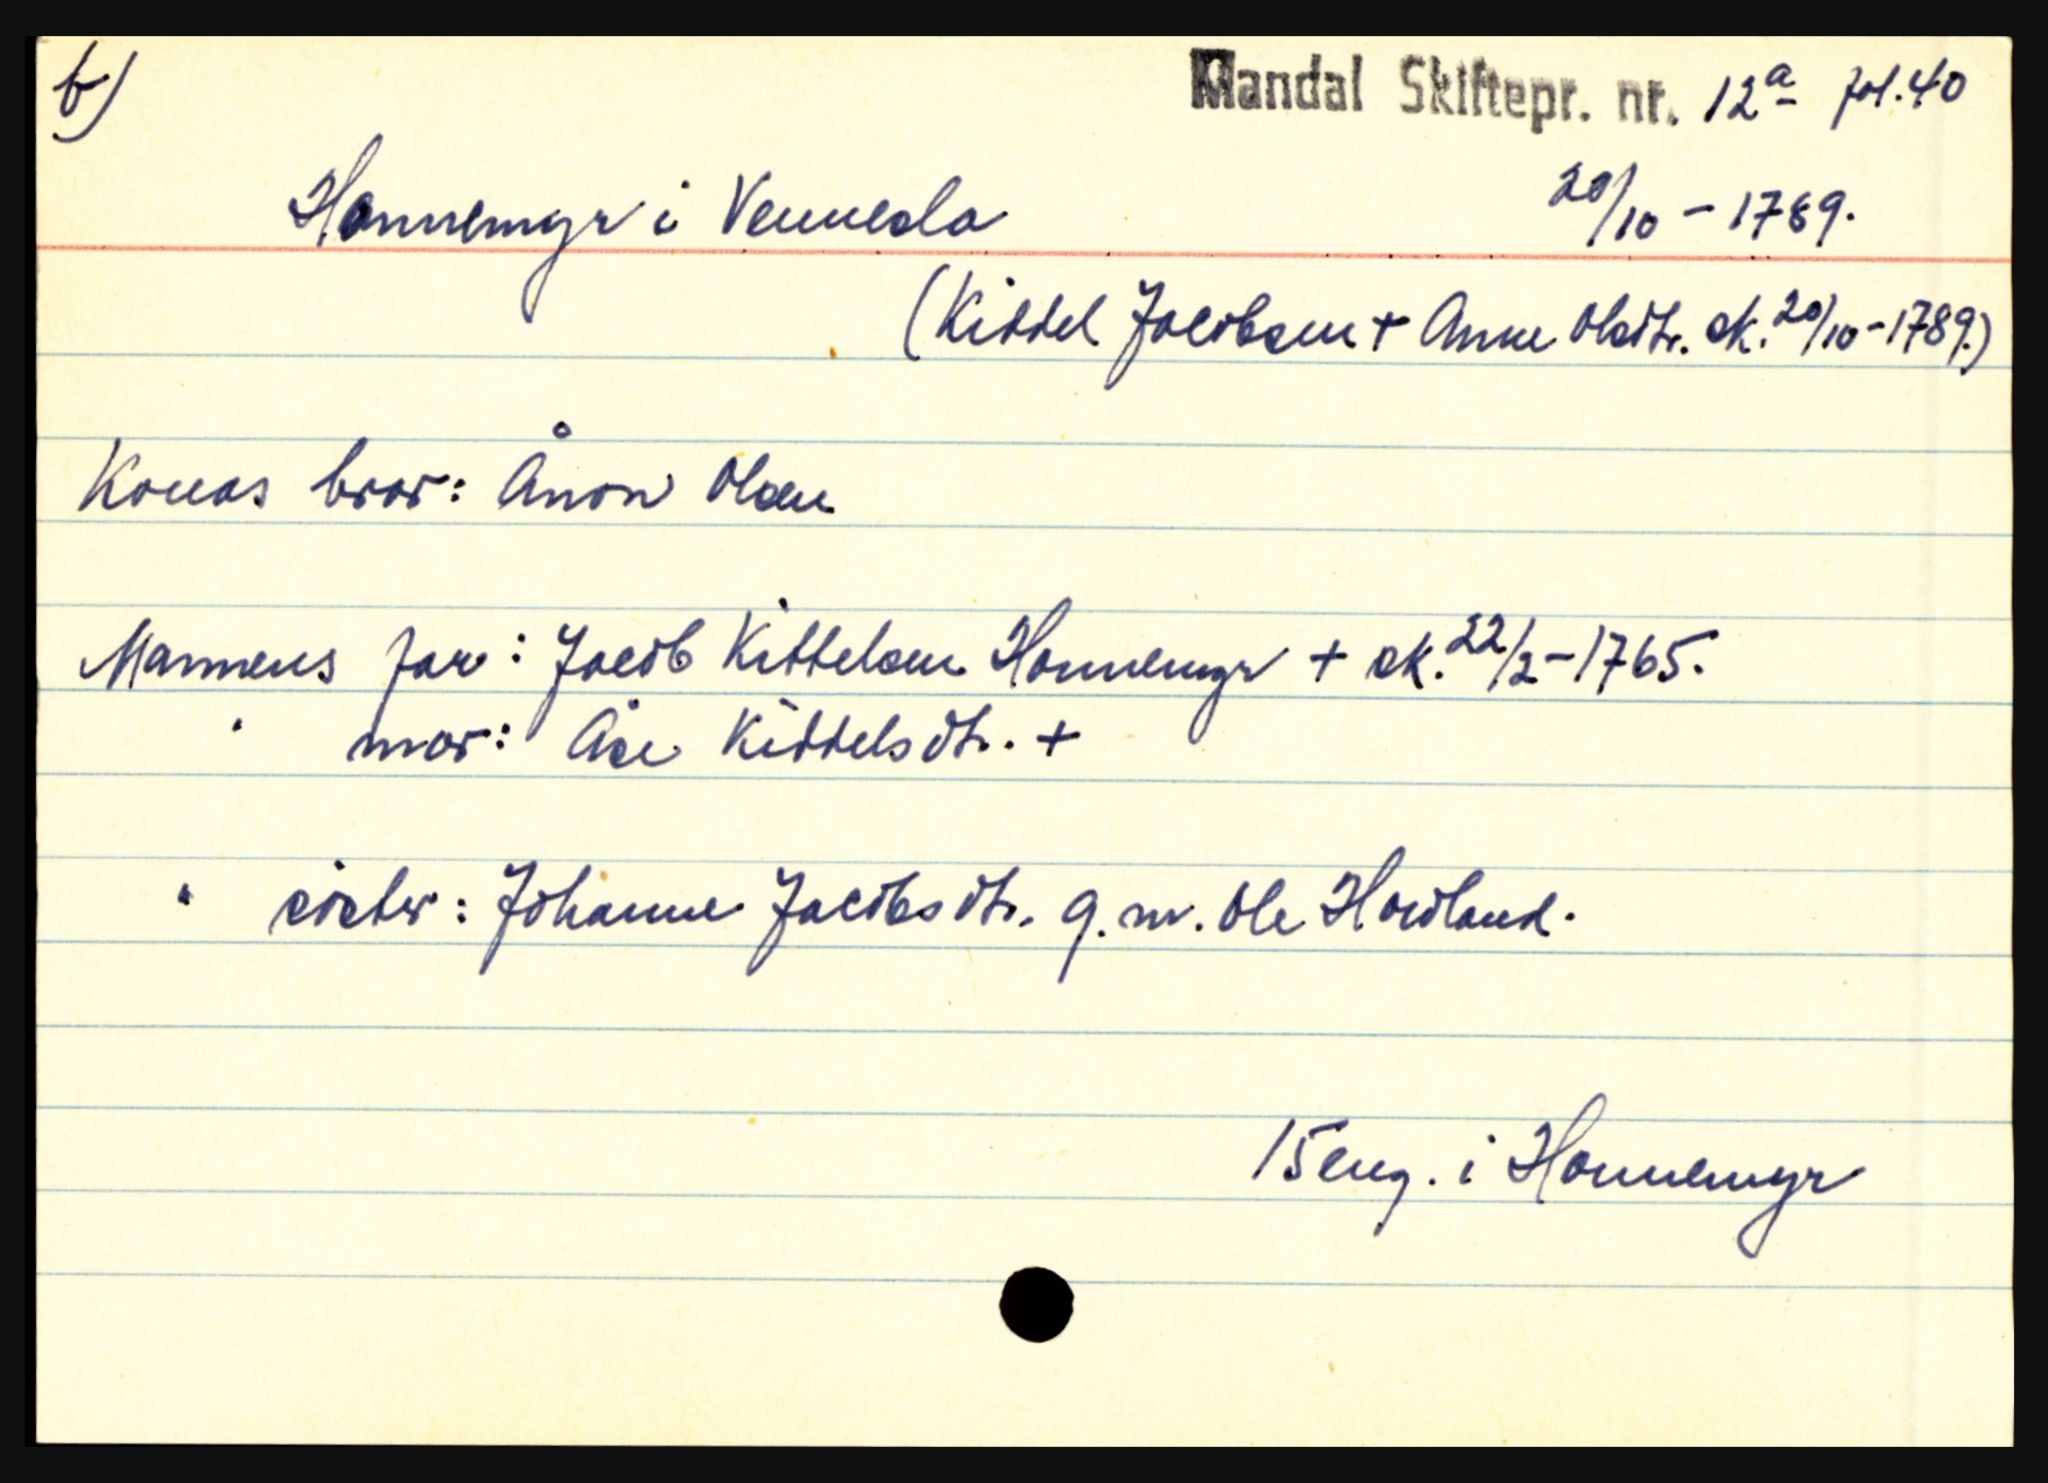 b)
Mandal Skiftepr. nr. 12a fol. 40
Honnemyr i Vennesla 20/10 - 1789.
(Kittel Jacobsen + Anne Olsdtr. sk. 20/10 - 1789.)
Konas bror: Ånon Olsen
Mannens far: Jacob Kittelsen Honnemyr + sk. 22/2 - 1765.
" mor: Åse Kittelsdtr. +
" søster: Johanne Jacobsdtr. g.m. Ole Hordland.
15 eng. i Honnemyr